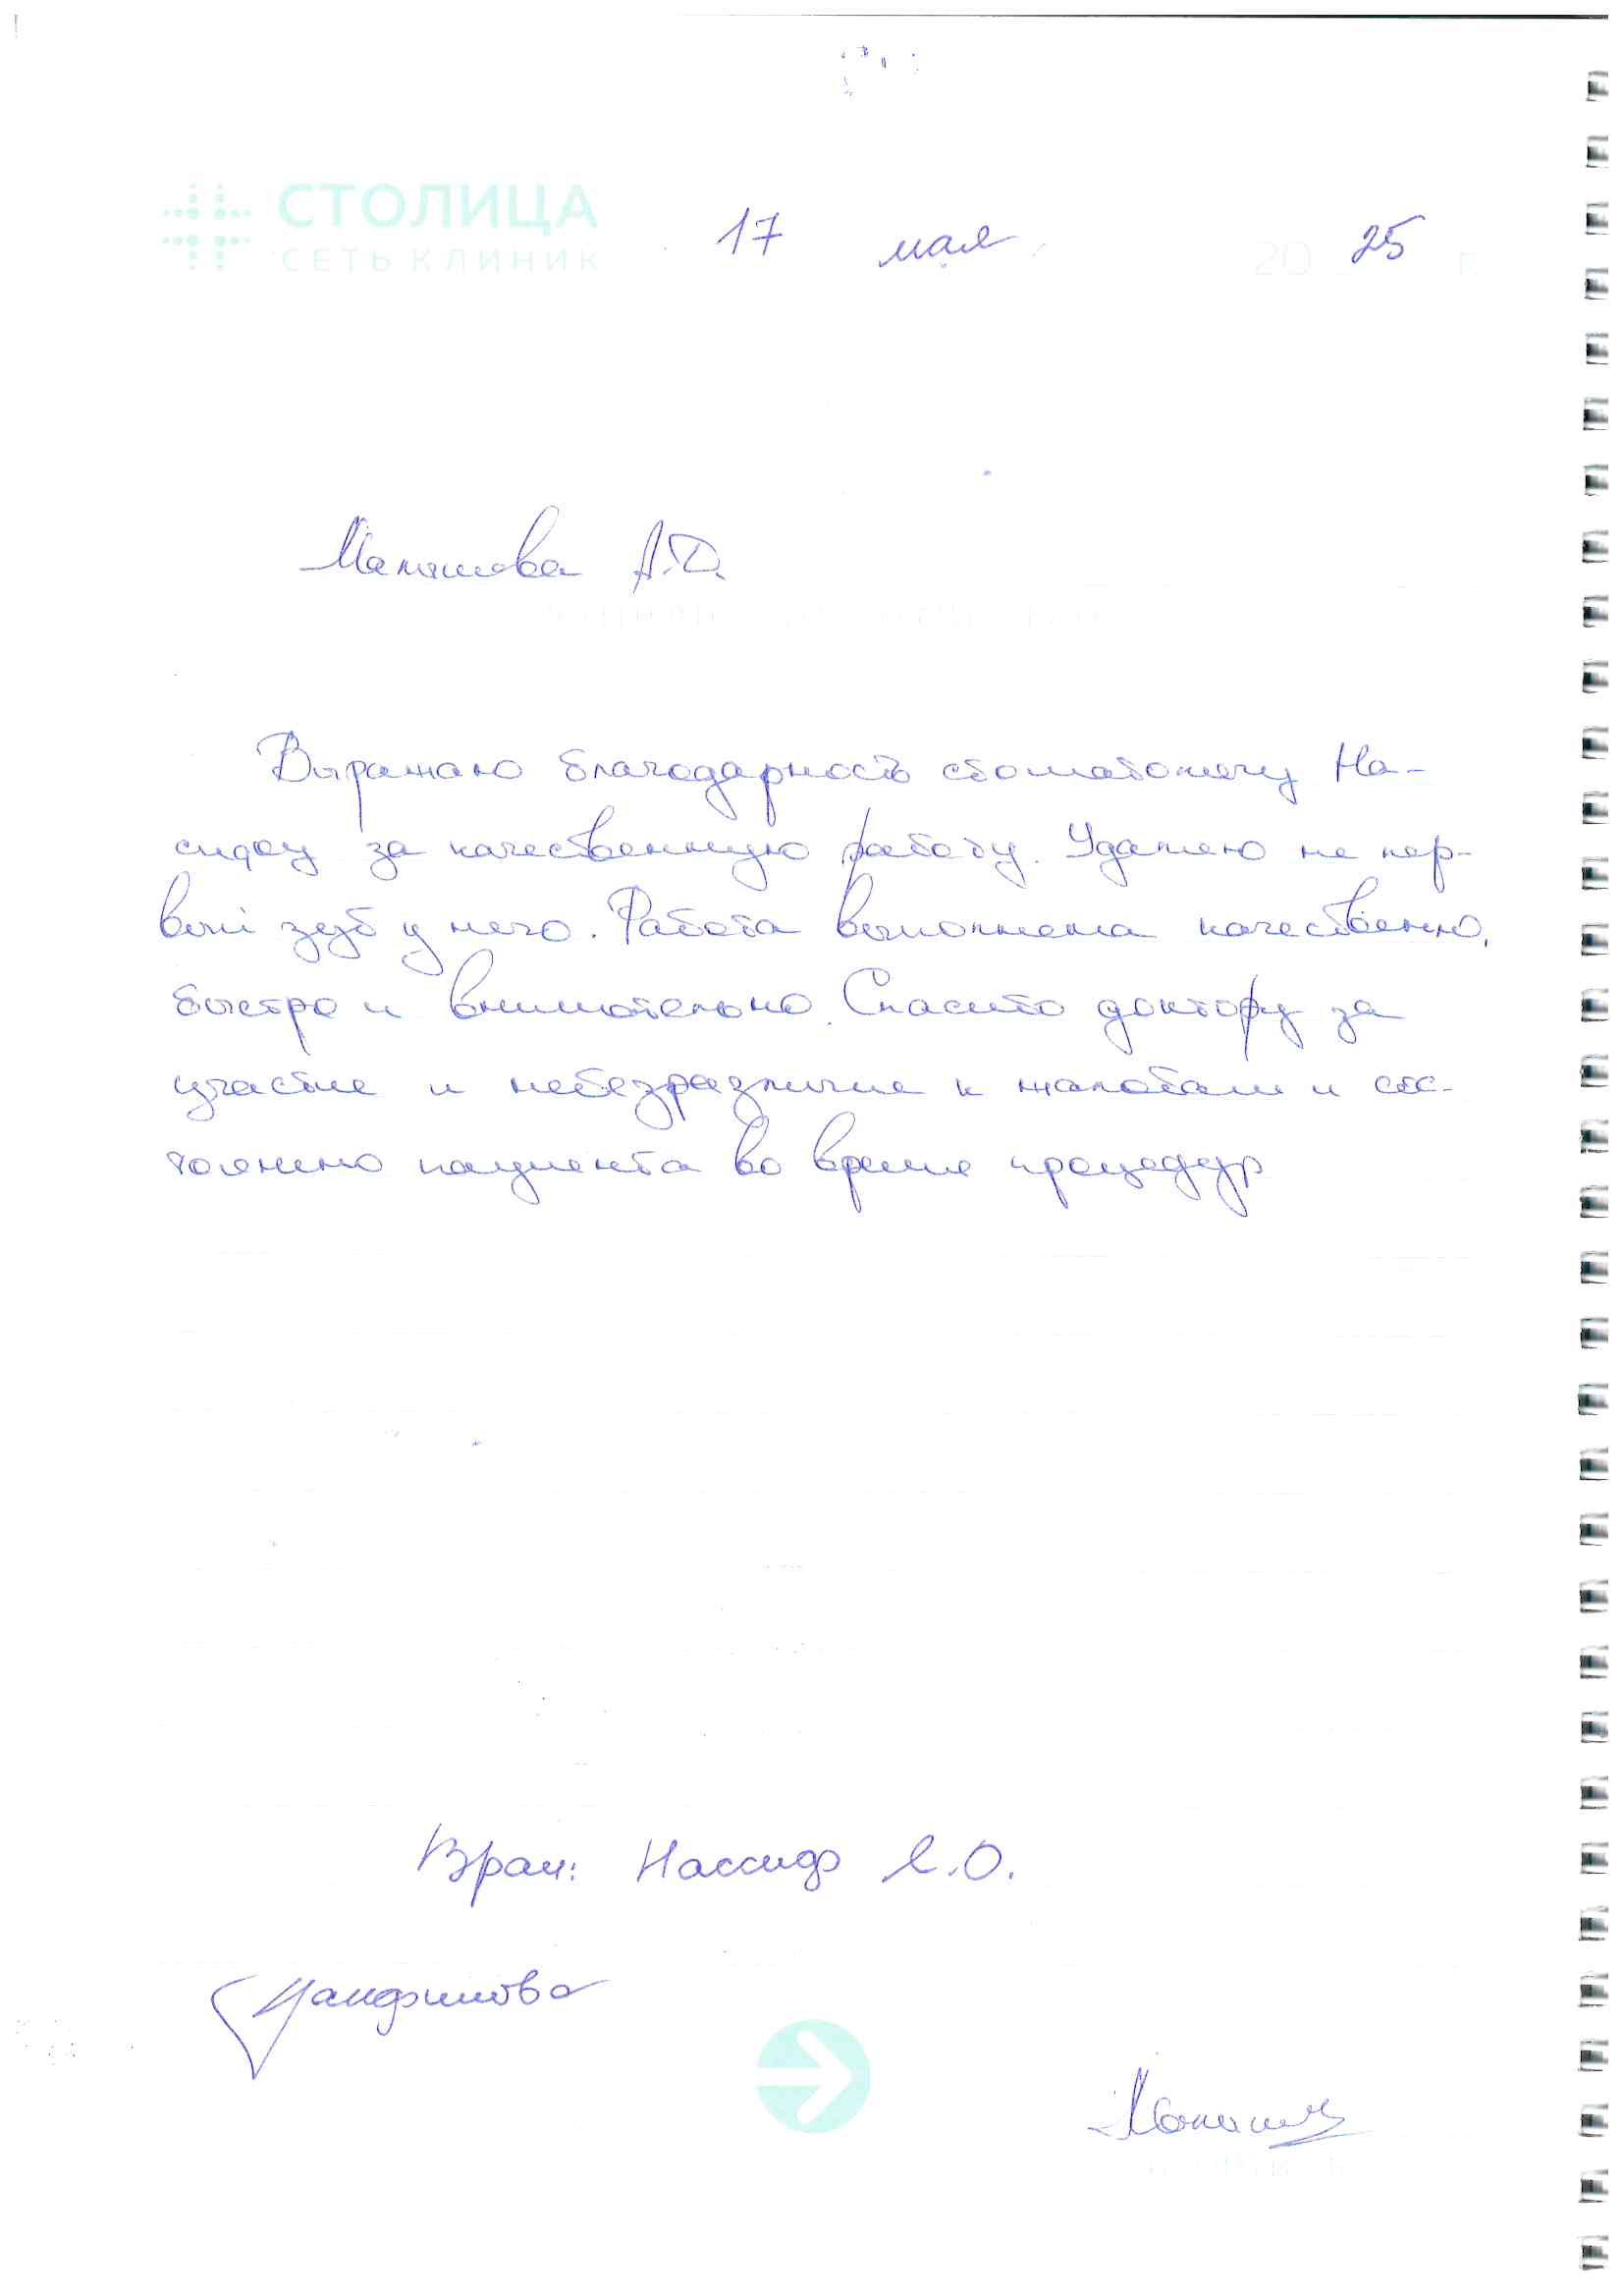 СТОЛИЦА
СЕТЬ КЛИНИК
17 мая 2025 г
А.Д.
Выражаю благодарность стоматологу На-
сифу за качественную работу. Удаляю не пер-
вый зуб у него. Работа выполнена качественно,
быстро и внимательно. Спасибо доктору за
участие и небезразличие к жалобам и сос-
тоянию пациента во время процедур
Врач: Нассиф Л.О.